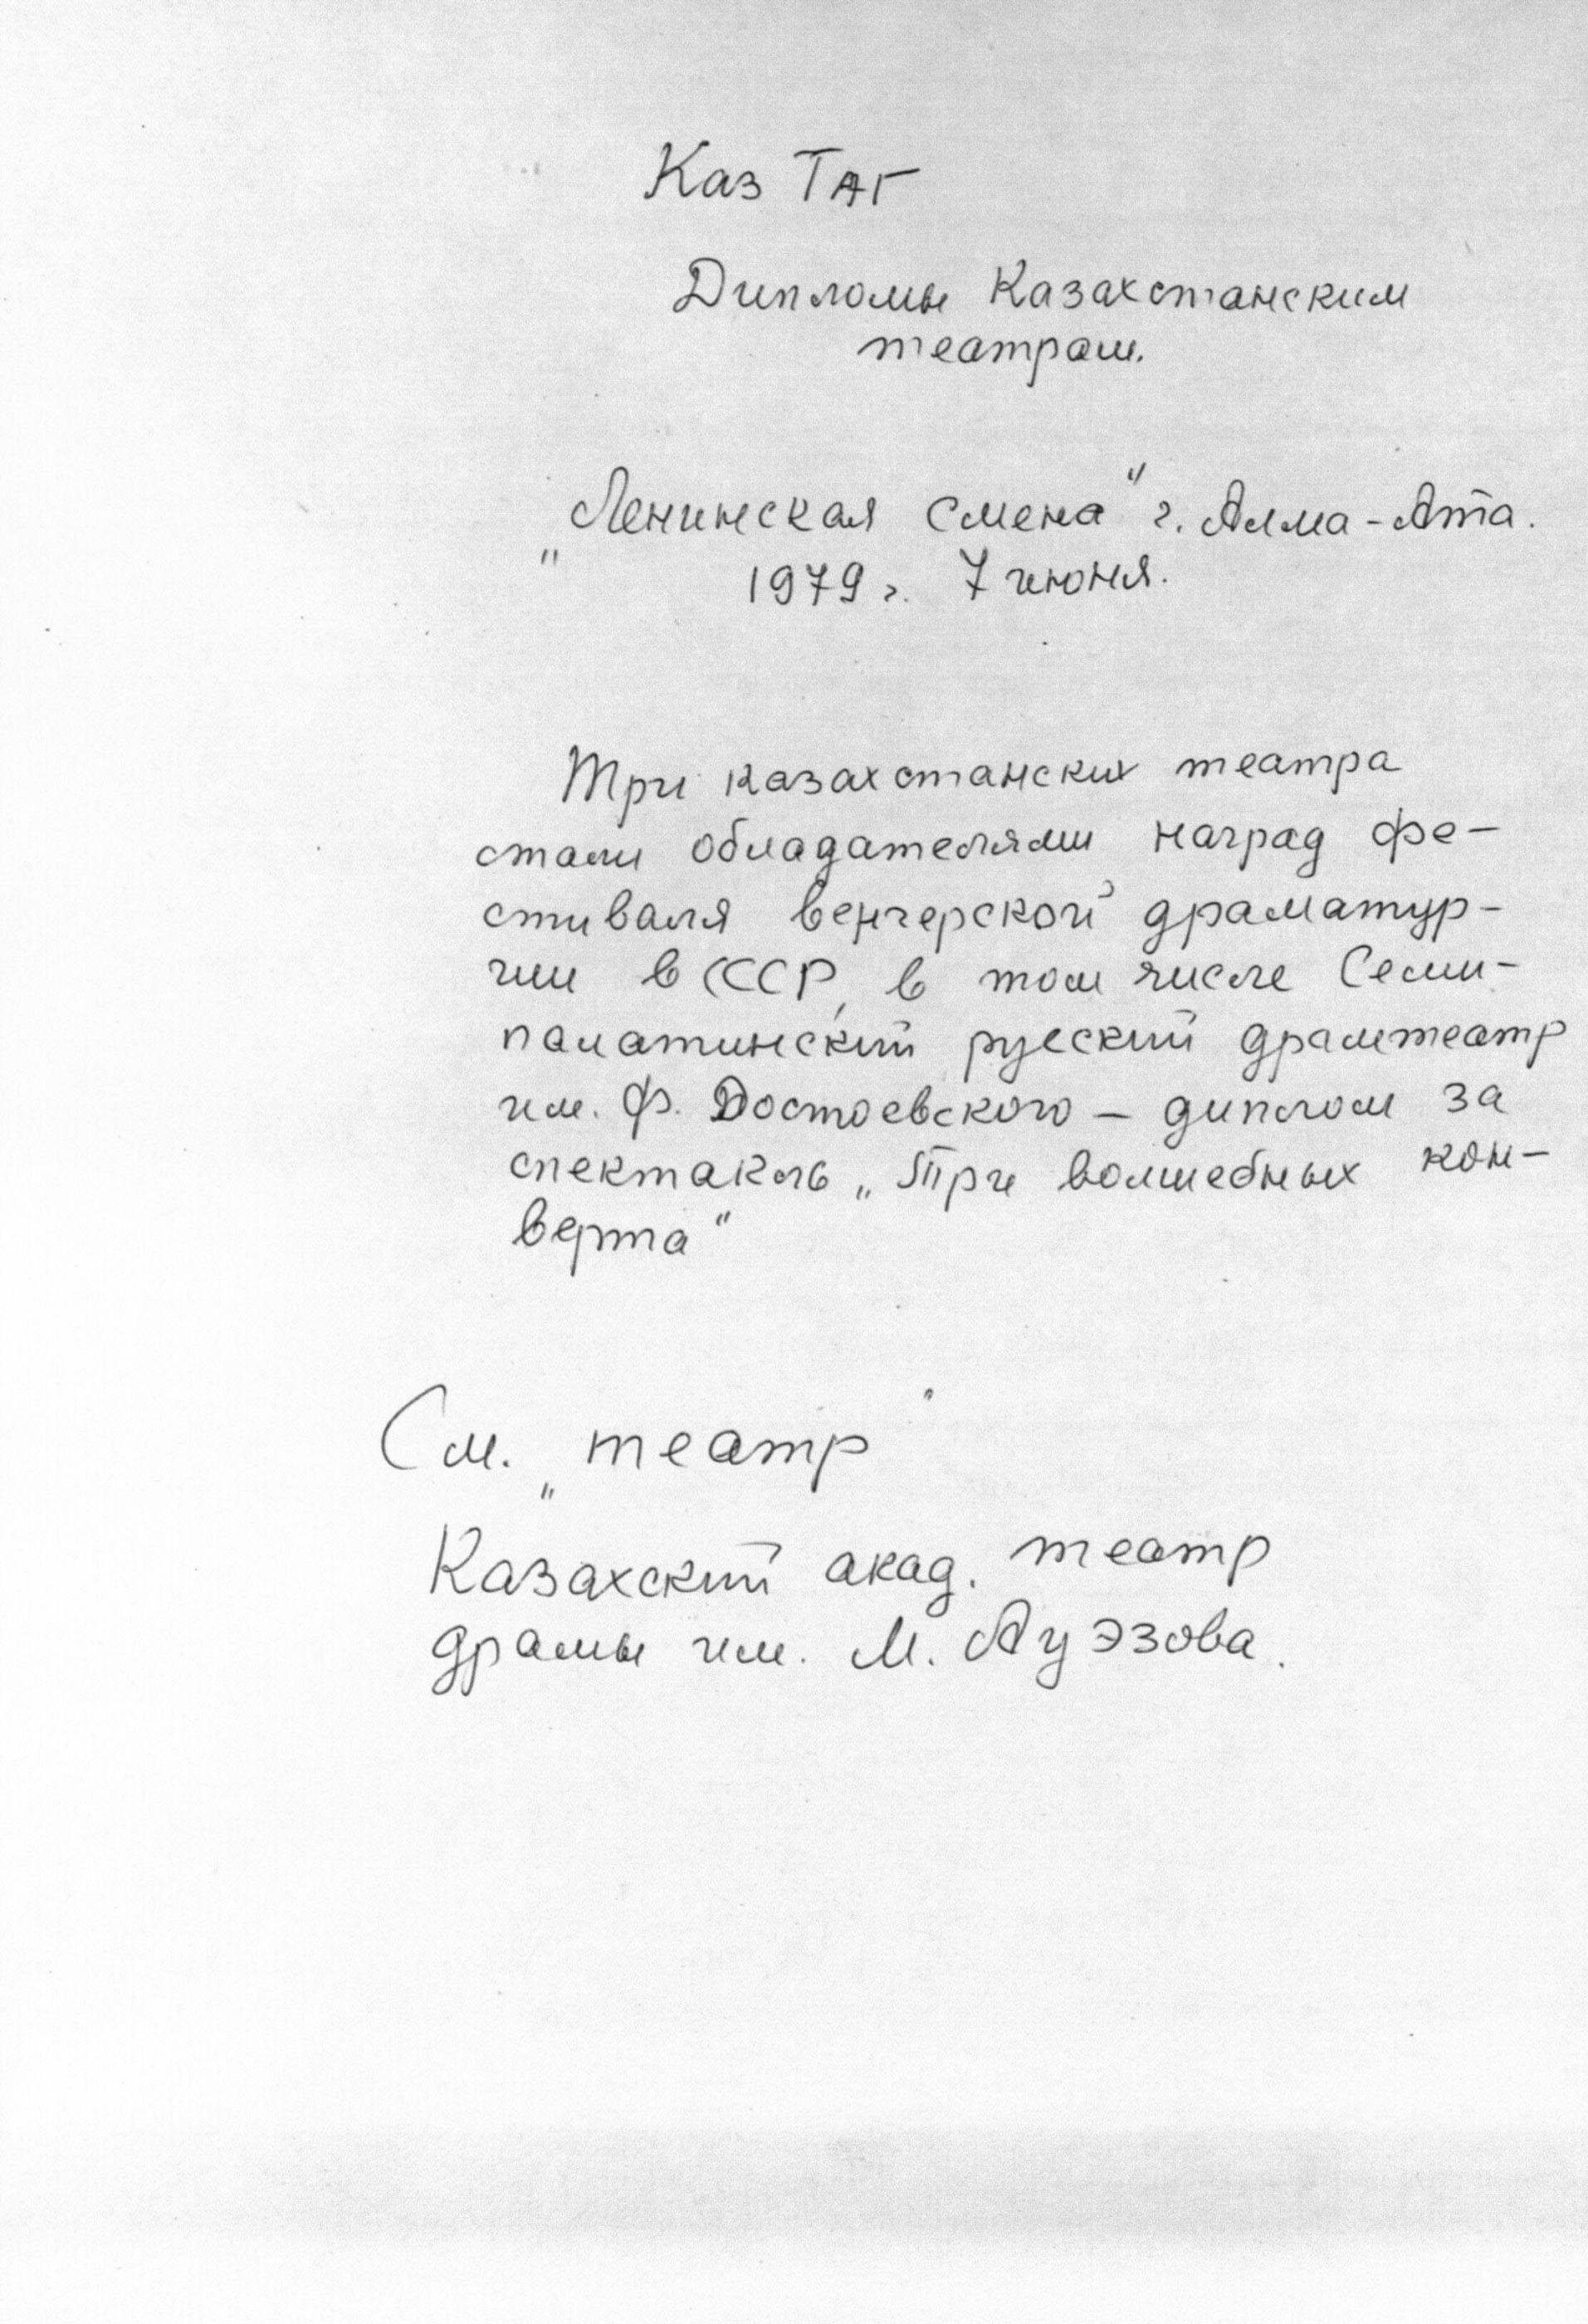 Каз ТАГ
Дипломы Казахстанским
театрам.
„Ленинская смена" г. Алма-Ата.
1979 г. 7 июня.
Три казахстанских театра
стали обладателями наград фе-
стиваля венгерской драматур-
гии в СССР, в том числе Семи-
палатинский русский драмтеатр
им. Ф. Достоевского – диплом за
спектакль „Три волшебных кон-
верта"
См. „театр"
Казахский акад. театр
драмы им. М. Ауэзова.